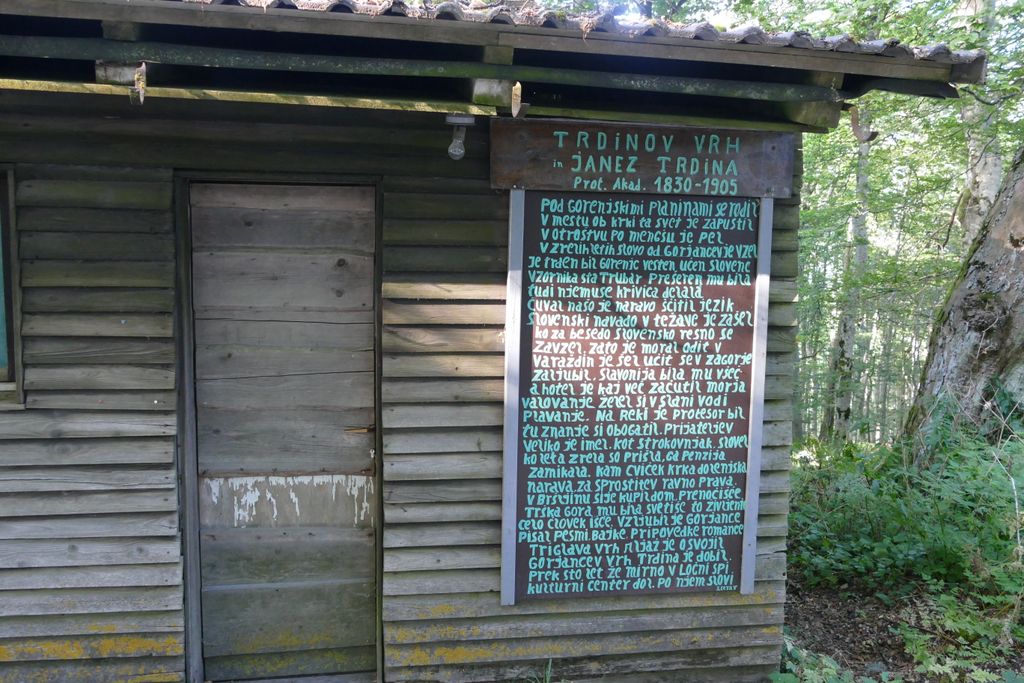 TRDINOV VRH
in JANEZ TRDINA
Prof. Akad. 1830-1905
Pod gorenjskimi planinami se rodil
V mestu ob krki ta svet je zapustil
V otrostvu po mengšu je pel
V zrelih letih slovo od Gorjancev je vzel
je trden bil gorenc vesten, učen, slovenc
Vzornika sta Trubar Prešeren mu bila
tudi njemu se krivica delala
Čuval našo je naravo ščitil jezik
Slovenski navado v težave je zašel
ko za besedo slovensko resno se
zavzel, zato je moral odit v
Varaždin je šel učit se v zagorje
zaljubil, Slavonija bila mu všeč
a hotel je kaj več začutil morja
valovanje želel si v slani vodi
plavanje. Na Reki je Profesor bil
tu znanje si obogatil. Prijateljev
veliko je imel. Kot strokovnjak, slovel
ko leta zrela so prišla, ga penzija
zamikala. Kam cviček krka dolenjska
narava, za sprostitev ravno prava.
V Bršljinu si je kupil dom, prenočišče
Trška gora mu bila svetišče to življenje
celo človek išče, vzljubil je Gorjance
pisal pesmi, Bajke, Pripovedke romance
Triglava vrh Aljaž je osvojil
Gorjancev vrh Trdina je dobil
Prek sto let že mirno v Ločni spi
kulturni center dol. po njem slovi